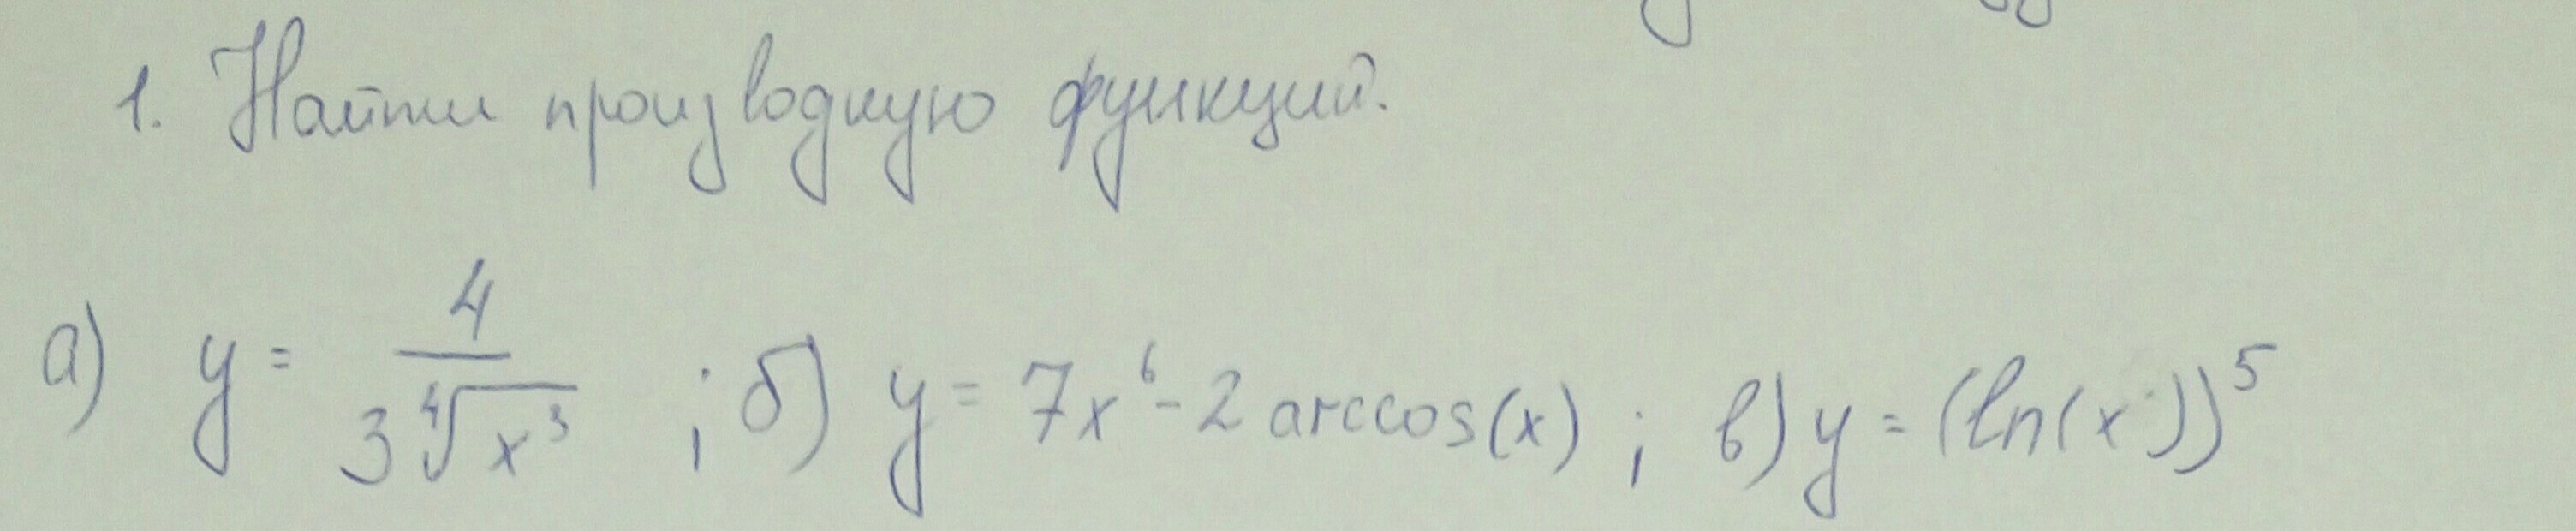 1. Найти производную функций.
а) y = 4/(3∜(x³)) ; б) y = 7x⁶ - 2 arccos(x) ; в) y = (ln(x))⁵